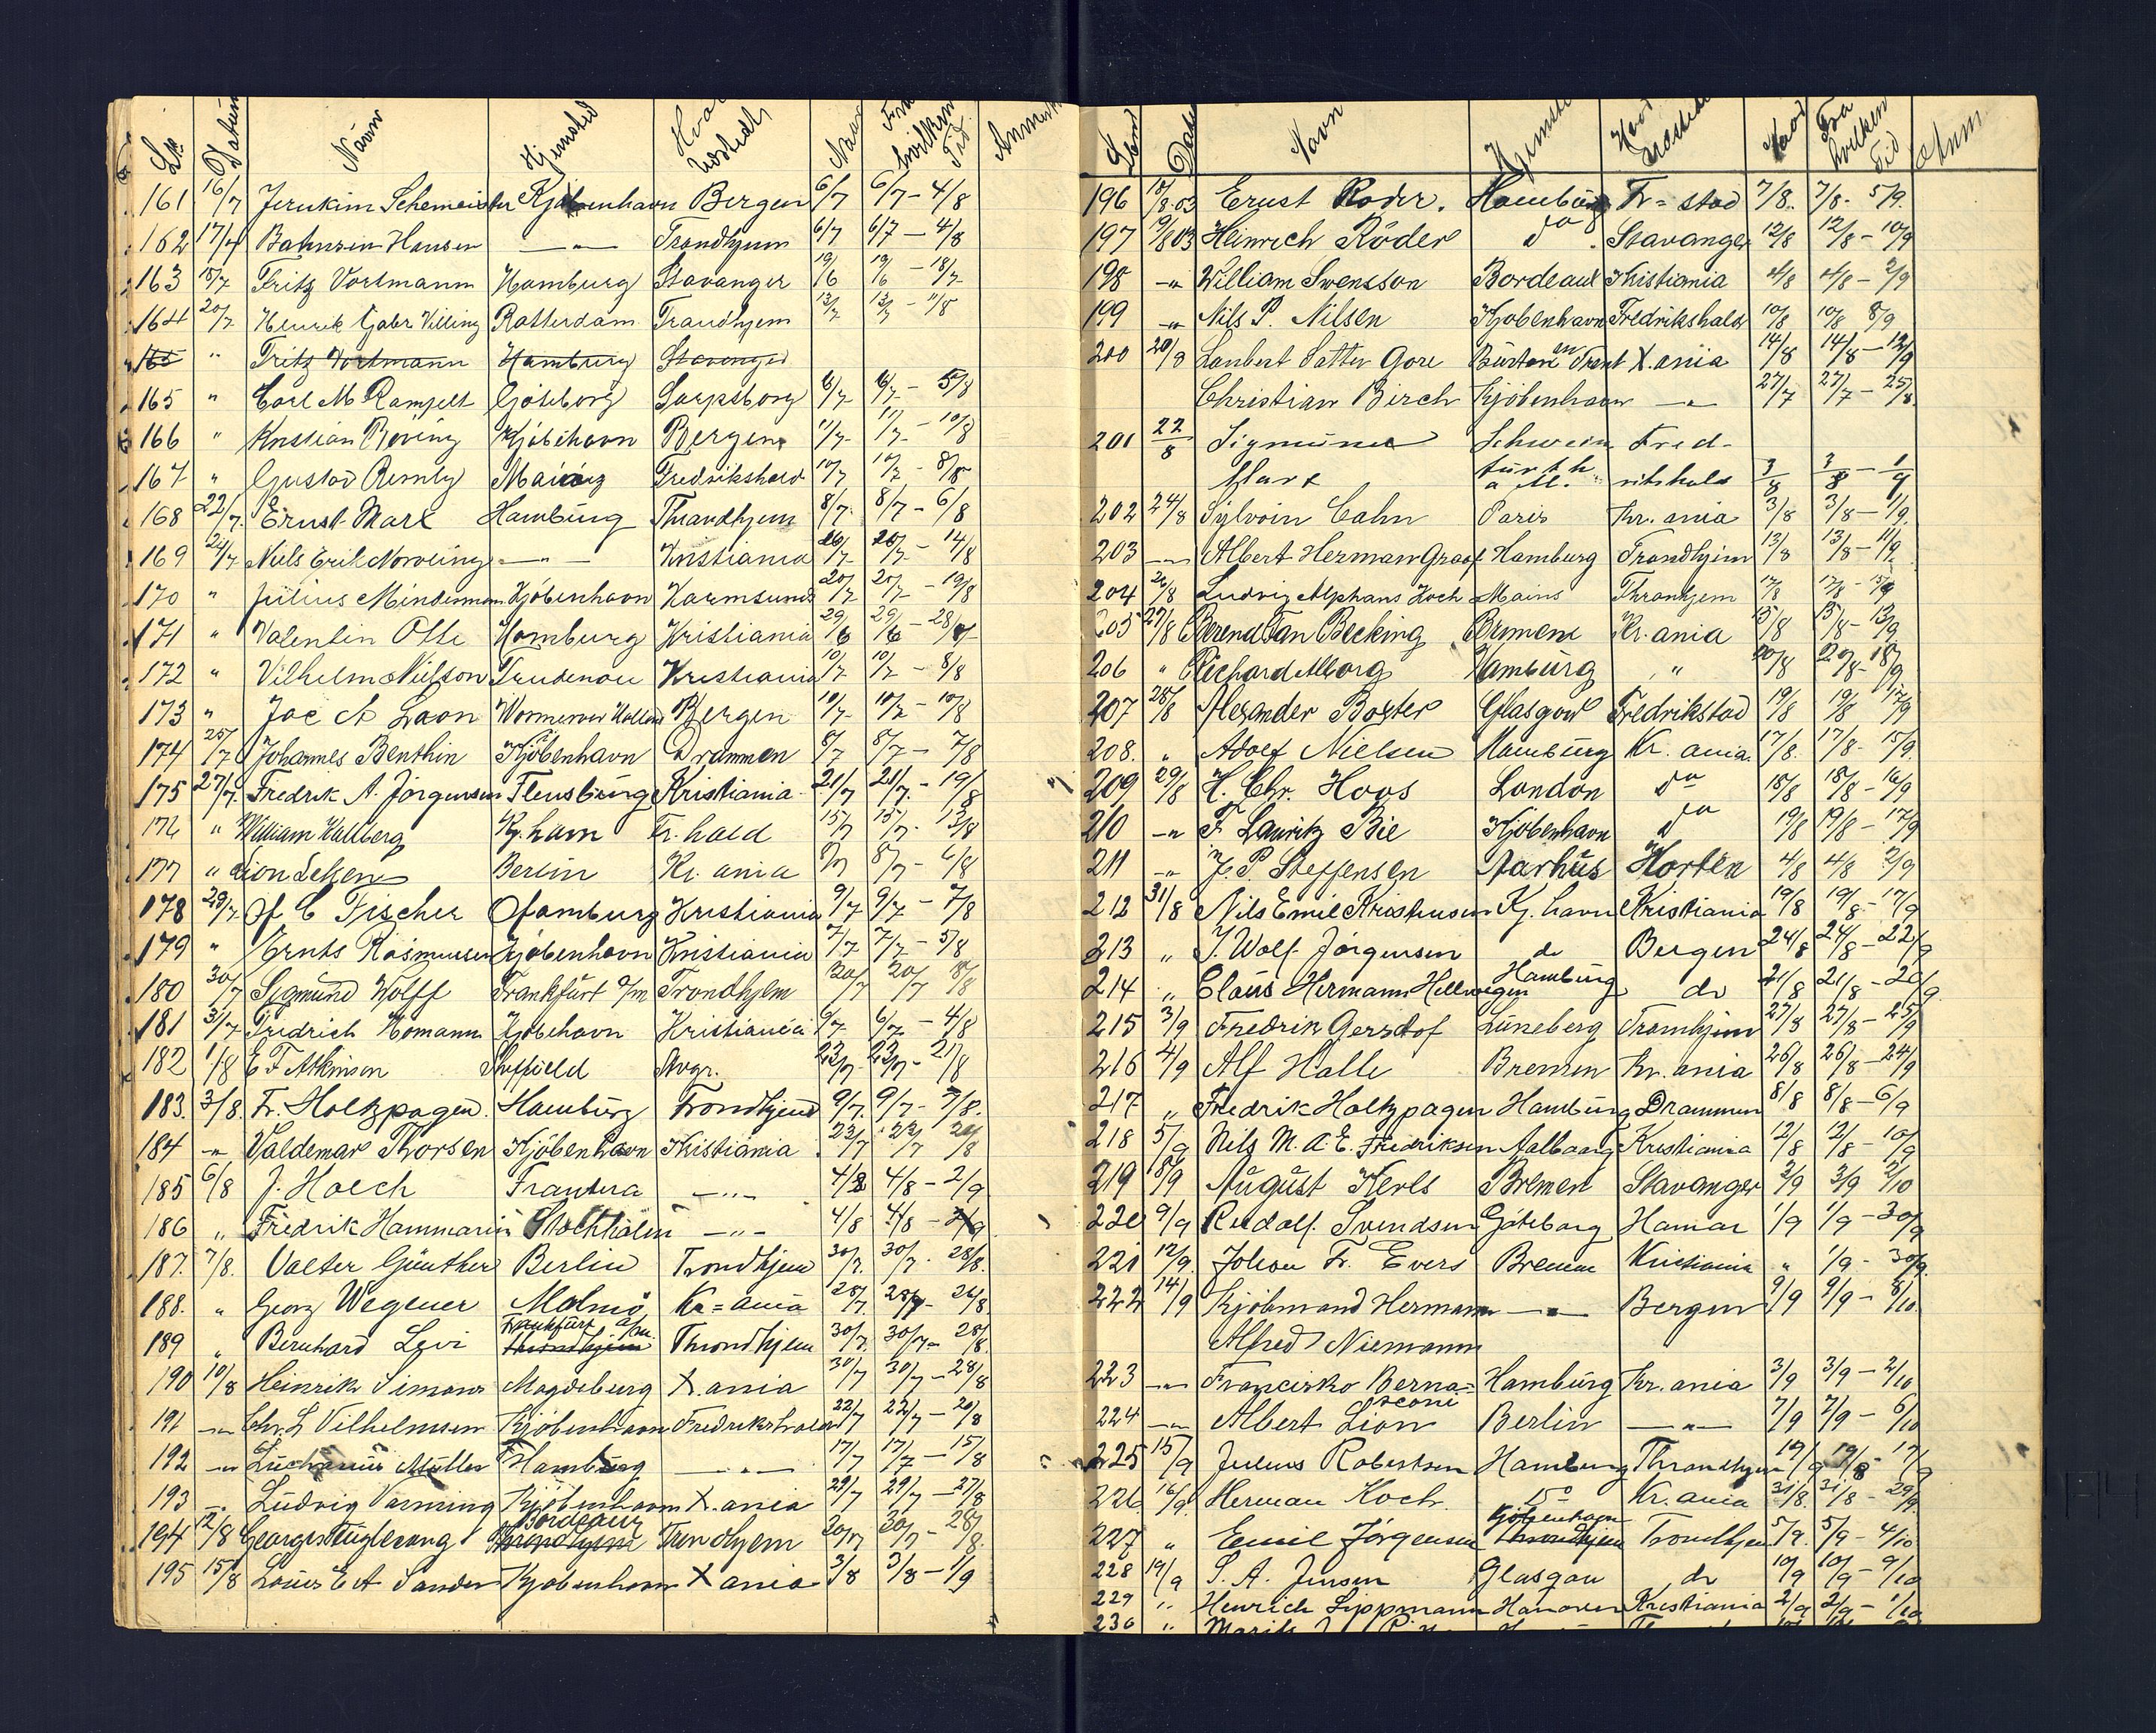 Datum Navn Hjemsted Hvor Udstedt Naar Fra hvilken Tid Anmerk
161 16/7 Schemeister Kjøbenhavn Bergen 6/7 6/7 - 4/8
162 17/7 Bahnsen Hansen —"— Trondhjem 6/7 6/7 - 4/8
163 18/7 Fritz Vortmann Hamburg Stavanger 19/6 19/6 - 18/7
164 20/7 Henrik Gabr Villing Rotterdam Trondhjem 13/7 13/7 - 11/8
165 " Fritz Vortmann Hamburg Stavanger
165 " Carl M Ramfelt Göteborg Sarpsborg 6/7 6/7 - 5/8
166 " Kristian Böving Kjöbehavn Bergen 11/7 11/7 - 10/8
167 " Gustav Remly Fredrikshald 10/7 10/7 - 8/8
168 22/7 Ernst Marx Hamburg Thrandhjem 8/7 8/7 - 6/8
169 24/7 Niels Erik Norveling —"— Kristiania 14/8
170 " Julius Mindermann Kjöbenhavn Karmsund 20/7 20/7 - 19/8
171 " Valentin Otte Hamburg Kristiania 29/6 29/6 - 28/7
172 " Vilhelm Nielson Trudenau Kristiania 10/7 10/7 - 8/8
173 " Jac A Laan Wormerver Holland Bergen 10/7 10/7 - 10/8
174 25/7 Johannes Benthin Kjöbenhavn Drammen 8/7 8/7 - 7/8
175 27/7 Fredrik A. Jörgensen Flensburg Kristiania 21/7 21/7 - 19/8
176 " William Wallberg Kj.havn Fr. hald 15/7 15/7 - 13/8
177 " Berlin Kr. ania 8/7 8/7 - 6/8
178 29/7 H C Fischer Hamburg Kristiania 9/7 9/7 - 7/8
179 " Ernts Rasmussen Kjøbenhavn Kristiania 7/7 7/7 - 5/8
180 30/7 Sigmund Wolff Frankfurt a/m Trondhjem 20/7 20/7 18/8
181 31/7 Fredrich Homann Kjøbehavn Kristiania 6/7 6/7 - 4/8
182 1/8 E F Atkinson Sheffield Svgr. 23/7 23/7 - 21/8
183. 3/8. Fr. Holtzpagen. Hamburg Trondhjem 9/7. 9/7 - 7/8.
184 —"— Valdemar Thorsen Kjöbenhavn Kristiania 22/7 22/7 20/8
185 6/8 J. Hoech —"— 4/8 4/8 - 2/9
186 " Fredrik Hammarin Stockholm —"— 4/8 4/8 - 2/9
187. 7/8. Valter Günther Berlin Trondhjem 30/7. 30/7. 28/8.
188. " Georg Wegener Malmö Kr=ania 28/7. 28/7 - 26/8
189 " Bernhard Levi Frankfurt a/m. Throndhjem Throndhjem 30/7. 30/7 - 28/8.
190 10/8 Heinrik Simons Magdeburg X.ania 30/7 30/7 - 28/8
191 —"— Chr. L Vilhelmsen Kjøbenhavn Fredrikshald 22/7 22/7 - 20/8
192 —"— Müller Hamburg —"— 17/7 17/7 - 15/8
193 —"— Ludvig Varming Kjøbenhavn X.ania 29/7 29/7 - 27/8
194 12/8 Georges Bordeaux Throndhjem Trondhjem 30/7 30/7 - 28/8.
195 15/8 Louis E A Sander Kjøbenhavn X ania 3/8 3/8 - 1/9
Navn Hjemsted Hvor udstedt Naar Fra hvilken tid Anm
196 18/8.03 Ernst Roder. Hamburg Fr=stad 7/8. 7/8 - 5/9.
197 19/8 03 Heinrich Röder do Stavanger 12/8 12/8 - 10/9
198 —"— William Swensson Bordeaux Kristiania 4/8 4/8 - 2/9
199 —"— Nils P. Nilsen Kjøbenhavn Fredrikshald 10/8 10/8 8/9
200 20/8 Lambert Satter Gore Burton on Trent X.ania 14/8 14/8 - 12/9
Christian Birch Kjöbenhavn —"— 27/7 27/7 - 25/8.
201 22/8 Sigmund Schwein Fred-
Marx furth a M. rikshald 3/8 3/8 - 1/9
202 24/8 Sylvain Cahn Paris Kr. ania 3/8 3/8 - 1/9.
203 —"— Albert Herman Graaf Hamburg Trondhjim 13/8 13/8 - 11/9
204 26/8 Ludvig Alphons Koch Mains Thronhjem 17/8 17/8 - 15/9
205 27/8 Berend Van Becking Bremen Kr. ania 15/8 15/8 - 13/9
206 " Richard Alborg Hamburg " 20/8 20/8 - 18/9
207 28/8 Alexander Boxter Glasgow Fredrikstad 19/8 19/8 17/9
208. " Adolf Nielsen Hamburg Kr. ania. 17/8. 17/8 - 15/9.
209 29/8 H. Chr. Hoos London do 18/8 18/8 - 16/9
210 —"— F. Lauritz Bie Kjöbenhavn do 19/8 19/8 - 17/9
211 —"— J. P. Steffensen Aarhus Horten 4/8 4/8 2/9
212 31/8 Nils Emil Kristensen Kj. havn Kristiania 19/8 19/8 - 17/9
213 " J. Wolf Jörgensen do Bergen 24/8 24/8 - 22/9
214 " Claus Hermann Hellwegen Hamburg do 21/8 21/8 - 20/9.
215 3/9 Fredrik Gerstof Luneberg Tromhjem 27/8 27/8 - 25/9
216 4/9 Alf Halle Bremen Kr. ania 26/8 26/8 - 24/9
217 " Fredrik Holtzpagen Hamburg Drammen 8/8 8/8 - 6/9
218 5/9 Nils M. A. E. Fredriksen Aalborg Kristiania 12/8 12/8 - 10/9
219 8/9 August Kerls Bremen Stavanger 3/9 3/9 2/10
220 9/9 Rudolf Svendsen Göteborg Hamar 1/9 1/9 - 30/9
221 12/9. Johan Fr. Evers Bremen Kristiania " 1/9 - 30/9.
222 14/9 Kjöbmand Hermann —"— Bergen 9/9 9/9 - 8/10
Alfred Niemann
223 —"— Francisko Berna=sconi Hamburg Kr. ania 3/9 3/9 - 2/10
224 —"— Albert Lion Berlin —"— 7/9 7/9 - 6/10
225 15/9 Julius Robertsen Hamburg Throndhjem 19/8 - 17/9
226. 16/9. Herman Koch. Do Kr. ania 31/8. 31/8 - 29/9.
227 " Emil Jörgensen Kjöbenhavn Throndhjem Trondhjem 5/9. 5/9 - 4/10
228 19/9 S. A. Jensen Glasgow do 10/9 10/9 - 9/10
229 " Henrich Lippmann Hanover Kristiania 2/9 2/9 - 1/10
230 "